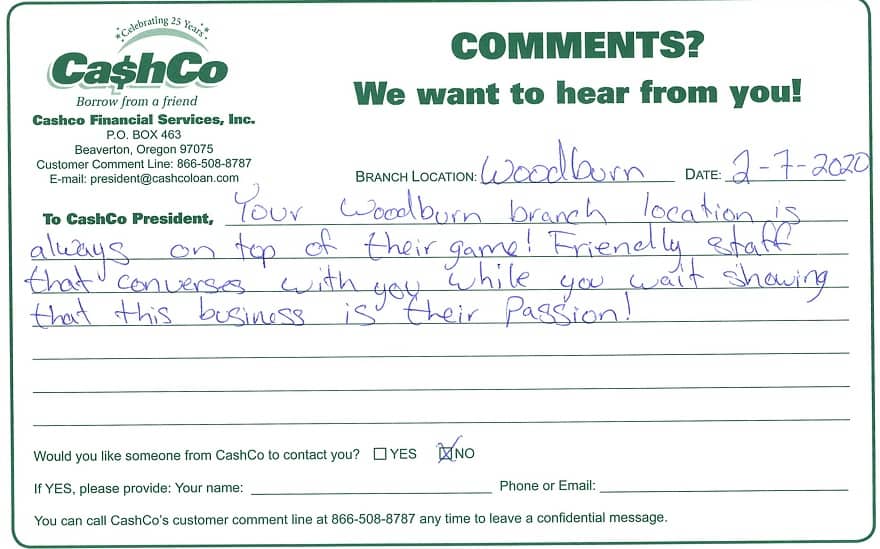 Celebrating 25 Years
Ca$hCo
Borrow from a friend
Cashco Financial Services, Inc.
P.O. BOX 463
Beaverton, Oregon 97075
Customer Comment Line: 866-508-8787
E-mail: president@cashcoloan.com
COMMENTS?
We want to hear from you!
BRANCH LOCATION: Woodburn DATE: 2-7-2020
To CashCo President, Your Woodburn branch location is
always on top of their game! Friendly staff
that converses with you while you wait showing
that this business is their Passion!
Would you like someone from CashCo to contact you? ☐ YES ☒ NO
If YES, please provide: Your name: Phone or Email:
You can call CashCo's customer comment line at 866-508-8787 any time to leave a confidential message.